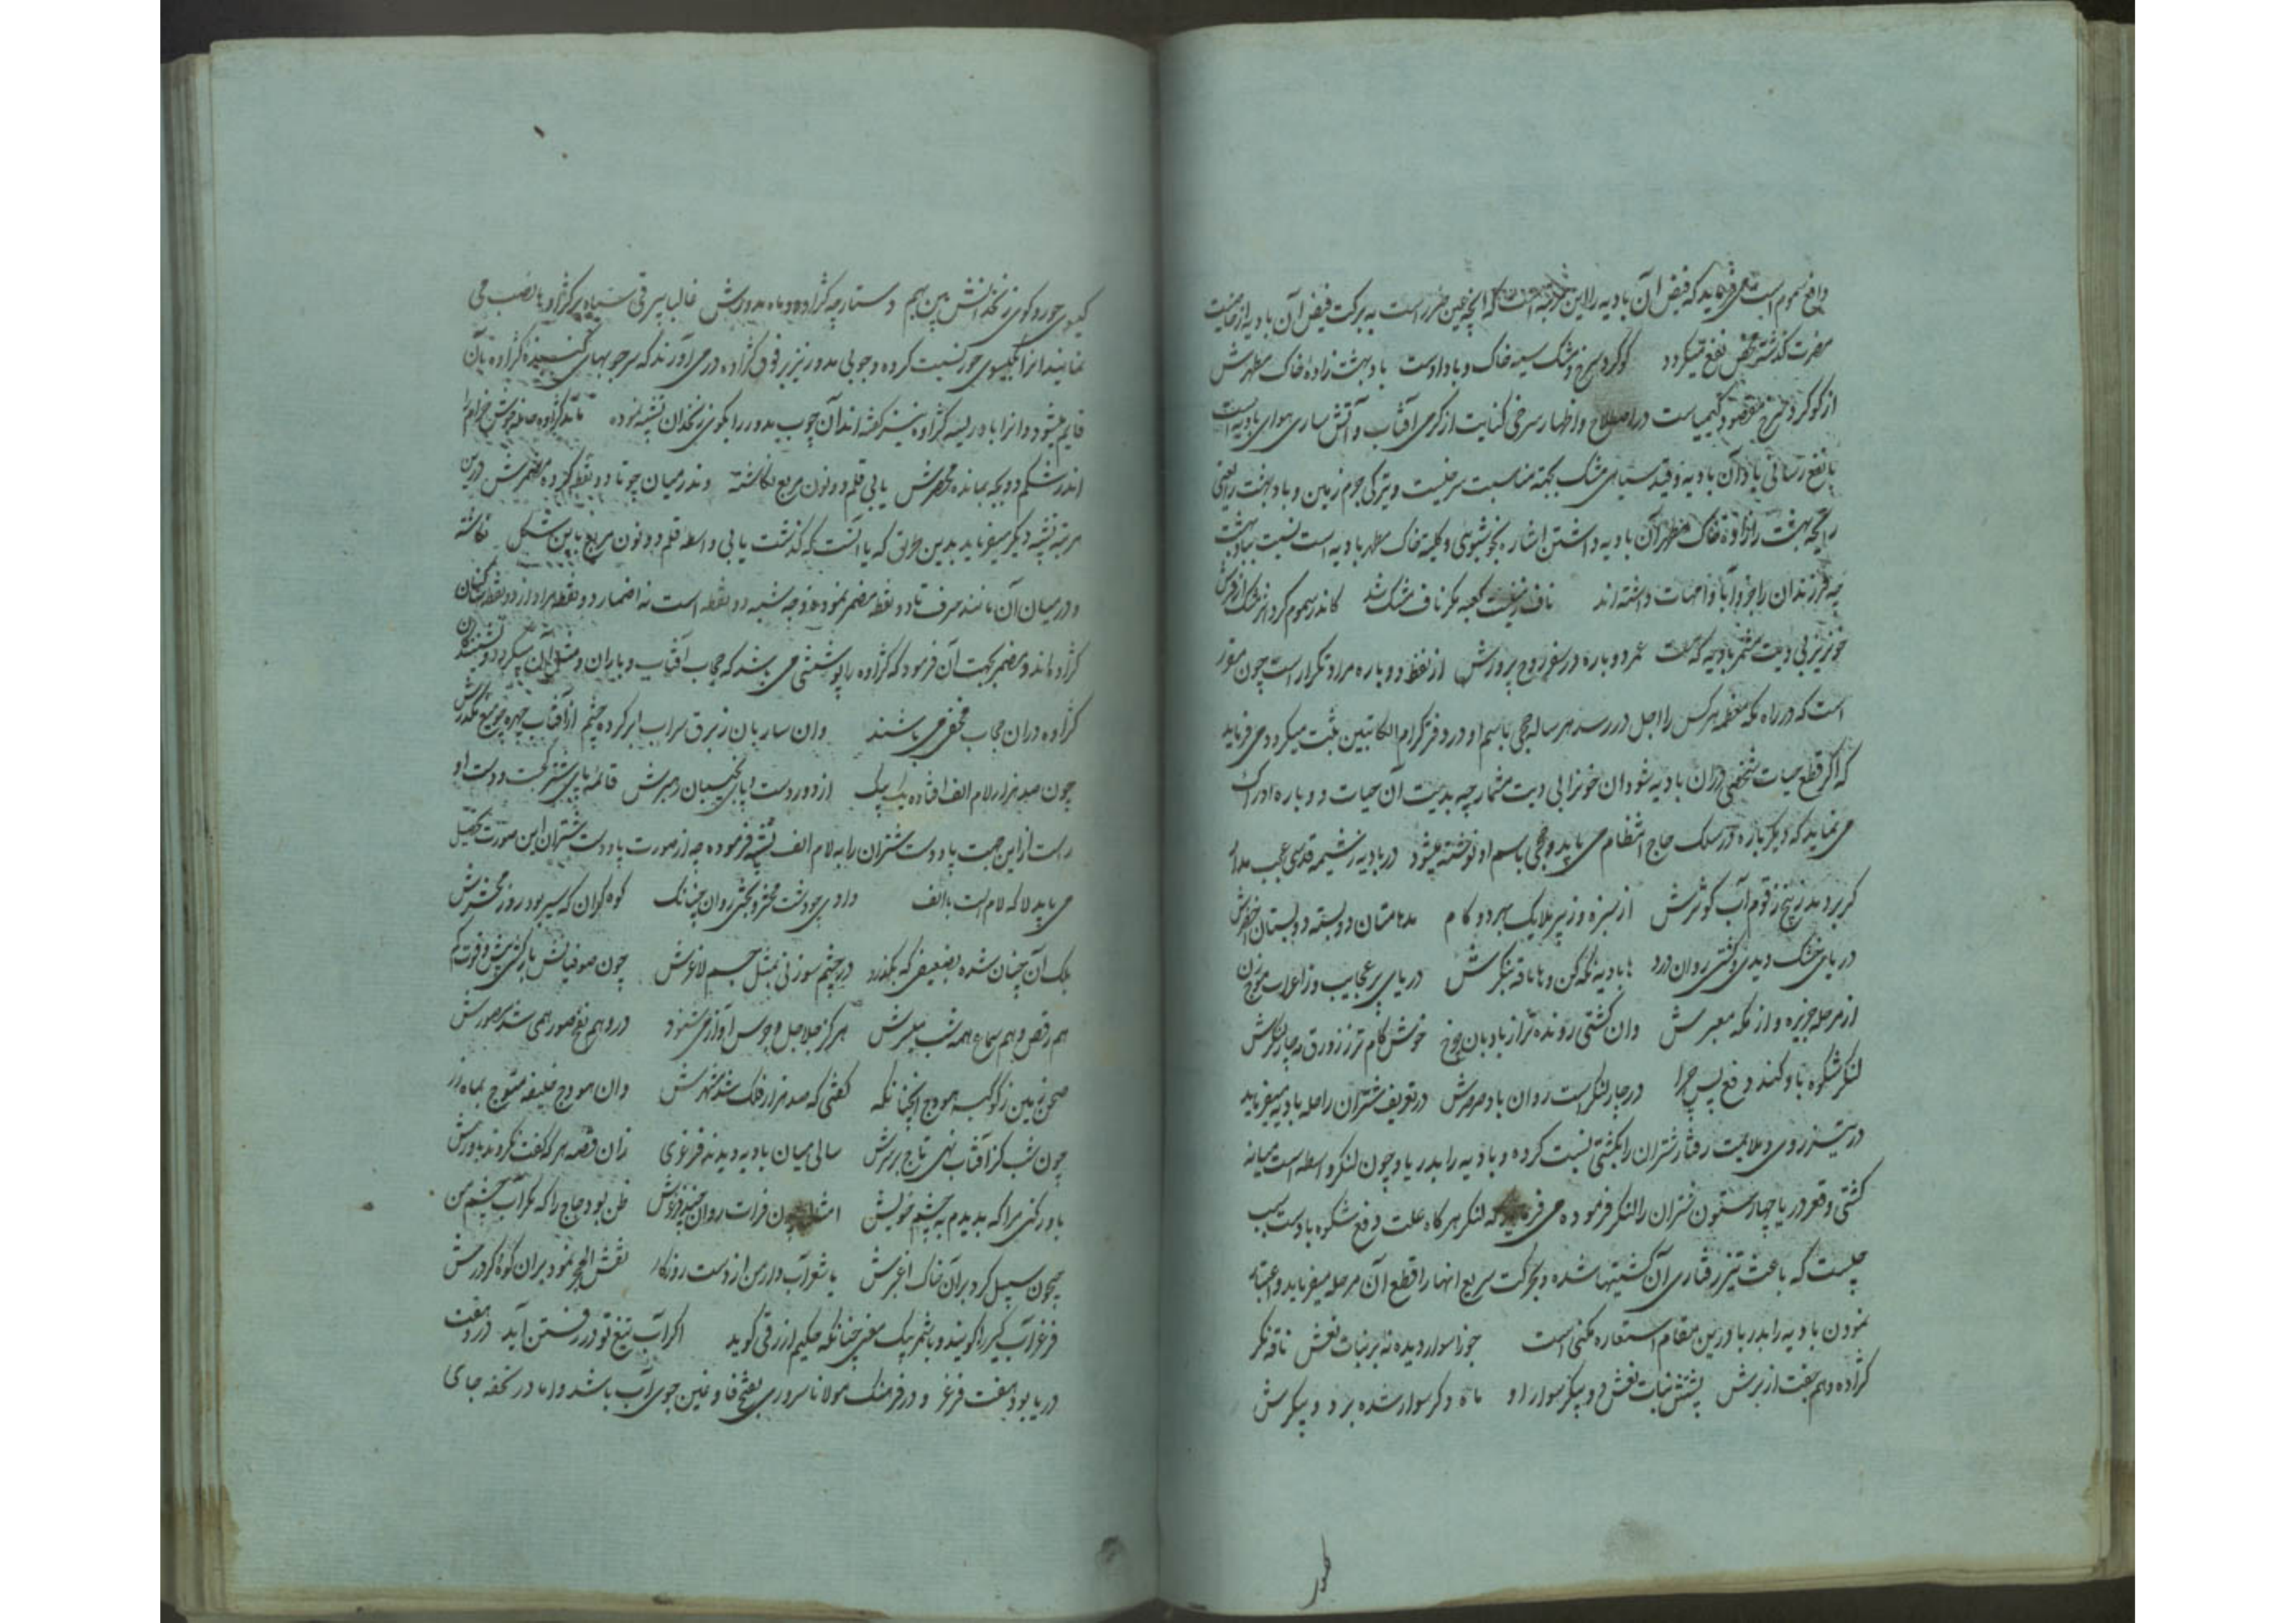 دافع سموم است می‌فرماید که فیض آن بادیه را این مرتبه است که آنچه عین ضرر است به برکت فیض آن بادیه از خاصیت
مضرت گذشته محض نفع میگردد گوگرد سرخ و مشک سیه خاک و باد اوست باد بهشت زاده خاک مطهرش
از گوگرد سرخ مقصود کیمیاست در اصطلاح و اظهار سرخی کنایت از گرمی آفتاب و آتش ساری هوای بادیه است
با نفع رسانی باد آن بادیه و قید سیاهی مشک بجهة مناسبت سرخیست و تیرگی جرم زمین و باد بهشت را یعنی
رایحه بهشت را زاده خاک مطهر آن بادیه داشتن اشاره بخوشبوی و کلیه خاک مطهر بادیه است نسبت بباد بهشت
چه فرزندان را جزو آبا و امهات داشته‌اند ناف زمینست کعبه مگر ناف مشک شد کاندر سموم کرد اثر مشک از فرش
خونریز بی دیت مشمر بادیه که هست عمر دوباره در سفر روح پرورش از لفظ دوباره مراد تکرار است چون مقرر
است که در راه مکه معظمه هر کس را اجل در رسد هر ساله حجی باسم او در دفتر کرام الکاتبین ثبت میگردد می فرماید
که اگر قطع حیات شخصی در آن بادیه شود آن خونرا بی دیت مشمار چه بدیت آن حیات دوباره ادراک
می نماید که دیگر باره در سلک حاج انتظام می یابد و حجی باسم او نوشته میشود در بادیه ز شیمه قدسی عجب مدار
گر بر دمد ز بیخ زقوم آب کوثرش از سبزه و ز پر ملایک بهر دو گام مدهامتان دو بسته دو بستان اخضرش
دریای خشک دیدی و کشتی روان درو ها بادیه نگه کن و ها ناقه بنگرش دریای پر عجایب وز اعراب موج زن
از مرحله جزیره و از مکه معبرش وان کشتی رونده‌تر از بادبان چرخ خوش گام‌تر ز زورق مه چار لنگرش
لنگر شکوه باد کند دفع پس چرا در چار لنگرست روان باد صرصرش در تعریف شتران راحله بادیه میفرماید
در تیزروی و ملایمت رفتار شتران را بکشتی نسبت کرده و بادیه را بدریا و چون لنگر واسطه است میانه
کشتی و قعر دریا چهار ستون شتران را لنگر فرموده می فرماید که لنگر هرگاه علت دفع شکوه بادست سبب
چیست که باعث تیز رفتاری آن کشتیها شده و بحرکت سریع انها را قطع آن مرحله میفرماید و اعتبار
نمودن بادیه را بدریا درین مقام استعاره مکنی است جوزا سوار دیده نه بر نبات نعش ناقه نگر
کژاوه و هم جفت از برش پشتش نبات نعش و دو پیکر سوار او ماه دگر سوار شده بر دو پیکرش
کیسوی حور و گوی زنخدانش بین بهم دستارچه کژاوه و ماه مدورش غالبا بیرقی سیاه بر کژاوها نصب می
نمایند انرا بکیسوی حور نسبت کرده و چوبی مدور نیز بر فوق کژاوه در می آورند که سر چوبهای کنبد کژاوه بآن
قایم میشود و انرا باد ریسه کژاوه نیز گفته‌اند آن چوب مدور را بگوی زنخدان تشبیه نموده ماند کژاوه حامله خوش خرام را
اندر شکم دو بچه بمانده محصرش یا بی قلم دو نون مربع نگاشته وندر میان چو تا دو نقطه کرده مضمرش درین
مرتبه تشبیه دیگر میفرماید بدین عنوان که یا انست که گذشت یا بی واسطه قلم دو نون مربع باین شکل نگاشته
و در میان آن مانند حرف تا دو نقطه مضمر نموده و وجه شبه دو نقطه است نه اضمار دو نقطه مراد از دو نقطه ساکنان
کژاوه‌اند و مضمر بجهت آن فرمود که کژاوه را پوششی می باشد که حجاب آفتاب و باران و مثل آن میگردد و نشینندگان
کژاوه در آن حجاب مخفی می باشند وان ساربان ز برق سراب ابر کرده چشم از آفتاب چهره چو میغ مکدرش
چون صد هزار لام الف افتاده یک بیک از دور دست و پای نجیبان رهبرش قائمه پای شتر کجست و دست او
راست از این جهت پا و دست شتران را به لام الف تشبیه فرموده چه از صورت پا و دست شتران این صورت تحصیل
می یابد لا که لام الف است با الف دادی چو دشت محشر و بختی روان چنانک کوه گران که سیر بود روز محشرش
بلک آن چنان شده بضعیفی که بگذرد در چشم سوزنی بمثل جسم لاغرش چون صوفیانش بارکشی بیش و قوت کم
هم رقص و هم سماع همه شب میسرش هرگز جلاجل و جرس آواز می شنود در وهم نفخ صور همی شد مصورش
صحن زمین ز کوکبه هودج آنچنانکه گفتی که صد هزار فلک شد مشهرش وان هودج خلیفه متوج بماه زر
چون شب کز آفتاب نهی تاج بر سرش سالی میان بادیه دیدند فرغری زان قصه هر که گفت نکردند باورش
باور کنی مرا که بدیدم به چشم خویش امسال چون فرات روان چند فرغرش ظن بود حاج را که مگر آب چشم من
چون سیل کرد بر آن خاک اغبرش یا شعر آبدار من از دست روزگار نقش الحجر نمود بر آن کوه گردرش
فرغر آب گیر را گویند و با شمر یک معنی چنانکه حکیم ازرقی گوید اگر آب تیغ تو در رفتن آید در هفت
دریا بود هفت فرغر و در فرهنگ مولانا سروری بفتح فا و غین جوی آب باشد و اما در تحفه جای